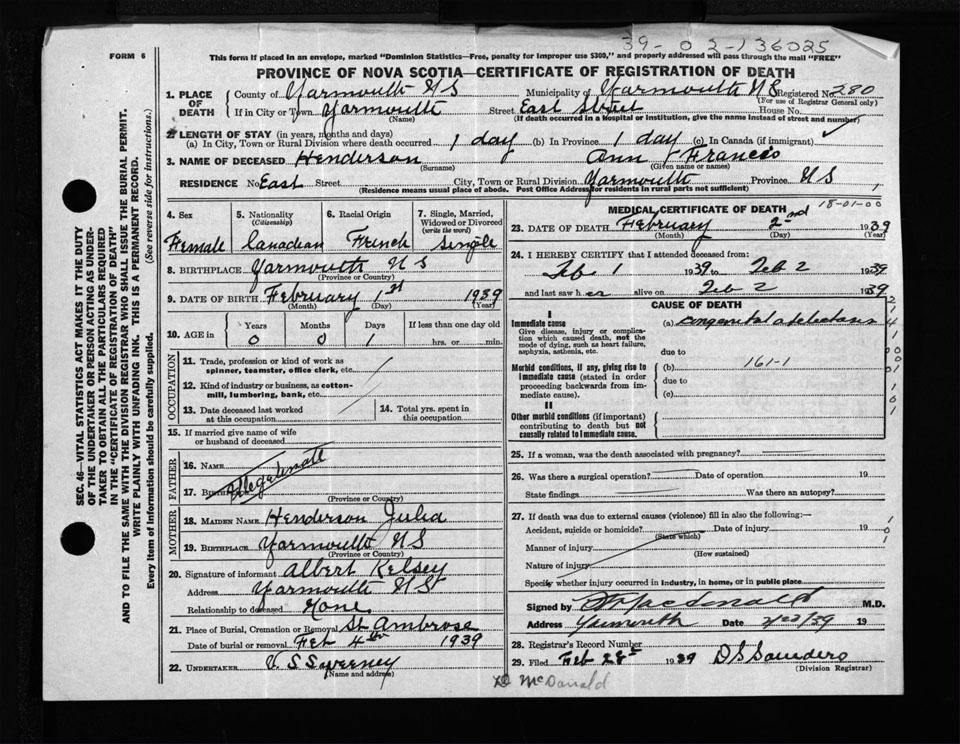 39-02-136025
FORM 6
This form if placed in an envelope, marked "Dominion Statistics—Free, penalty for improper use $300," and properly addressed will pass through the mail "FREE"
PROVINCE OF NOVA SCOTIA—CERTIFICATE OF REGISTRATION OF DEATH
1. PLACE OF DEATH
County of Yarmouth N S Municipality of Yarmouth N S Registered No. 280
(For use of Registrar General only)
If in City or Town Yarmouth Street East Street House No.
(Name) (If death occurred in a hospital or institution, give the name instead of street and number)
2. LENGTH OF STAY (in years, months and days)
(a) In City, Town or Rural Division where death occurred 1 day (b) In Province 1 day (c) In Canada (if immigrant)
3. NAME OF DECEASED Henderson Ann Francis
(Surname) (Given name or names)
RESIDENCE No. East Street City, Town or Rural Division Yarmouth Province N S
(Residence means usual place of abode. Post Office Address for residents in rural parts not sufficient)
4. Sex 5. Nationality (Citizenship) 6. Racial Origin 7. Single, Married, Widowed or Divorced (write the word)
Female Canadian French Single
8. BIRTHPLACE Yarmouth N S
(Province or Country)
9. DATE OF BIRTH February 1st 1939
(Month) (Day) (Year)
10. AGE in Years Months Days If less than one day old
0 0 1 hrs. or min.
OCCUPATION
11. Trade, profession or kind of work as spinner, teamster, office clerk, etc.
12. Kind of industry or business, as cotton-mill, lumbering, bank, etc.
13. Date deceased last worked at this occupation
14. Total yrs. spent in this occupation
15. If married give name of wife or husband of deceased
FATHER
16. Name
Illegitimate
17. Birthplace
(Province or Country)
MOTHER
18. MAIDEN NAME Henderson Julia
19. BIRTHPLACE Yarmouth N S
(Province or Country)
20. Signature of informant Albert Kelsey
Address Yarmouth N S
Relationship to deceased None
21. Place of Burial, Cremation or Removal St Ambrose
Date of burial or removal Feb 4th 1939
22. UNDERTAKER V S Sweeney
(Name and address)
MEDICAL CERTIFICATE OF DEATH
18-01-00
23. DATE OF DEATH February 2nd 1939
(Month) (Day) (Year)
24. I HEREBY CERTIFY that I attended deceased from:
Feb 1 1939 to Feb 2 1939
and last saw her alive on Feb 2 1939
CAUSE OF DEATH
I
Immediate cause (a) congenital atelectasis
Give disease, injury or complication which caused death, not the mode of dying, such as heart failure, asphyxia, asthenia, etc.
due to
Morbid conditions, if any, giving rise to immediate cause (stated in order proceeding backwards from immediate cause).
(b) 161-1
due to
(c)
II
Other morbid conditions (if important) contributing to death but not causally related to immediate cause.
25. If a woman, was the death associated with pregnancy?
26. Was there a surgical operation? Date of operation 19
State findings Was there an autopsy?
27. If death was due to external causes (violence) fill in also the following:—
Accident, suicide or homicide? Date of injury 19
(State which)
Manner of injury
(How sustained)
Nature of injury
Specify whether injury occurred in industry, in home, or in public place
Signed by Macdonald M.D.
Address Yarmouth Date 2/22/39 19
28. Registrar's Record Number
29. Filed Feb 28th 1939 D S Saunders
(Division Registrar)
McDonald
SEC. 46—VITAL STATISTICS ACT MAKES IT THE DUTY
OF THE UNDERTAKER OR PERSON ACTING AS UNDER-
TAKER TO OBTAIN ALL THE PARTICULARS REQUIRED
IN THE "CERTIFICATE OF REGISTRATION OF DEATH"
AND TO FILE THE SAME WITH THE DIVISION REGISTRAR WHO SHALL ISSUE THE BURIAL PERMIT.
WRITE PLAINLY WITH UNFADING INK. THIS IS A PERMANENT RECORD.
Every item of information should be carefully supplied. (See reverse side for instructions.)